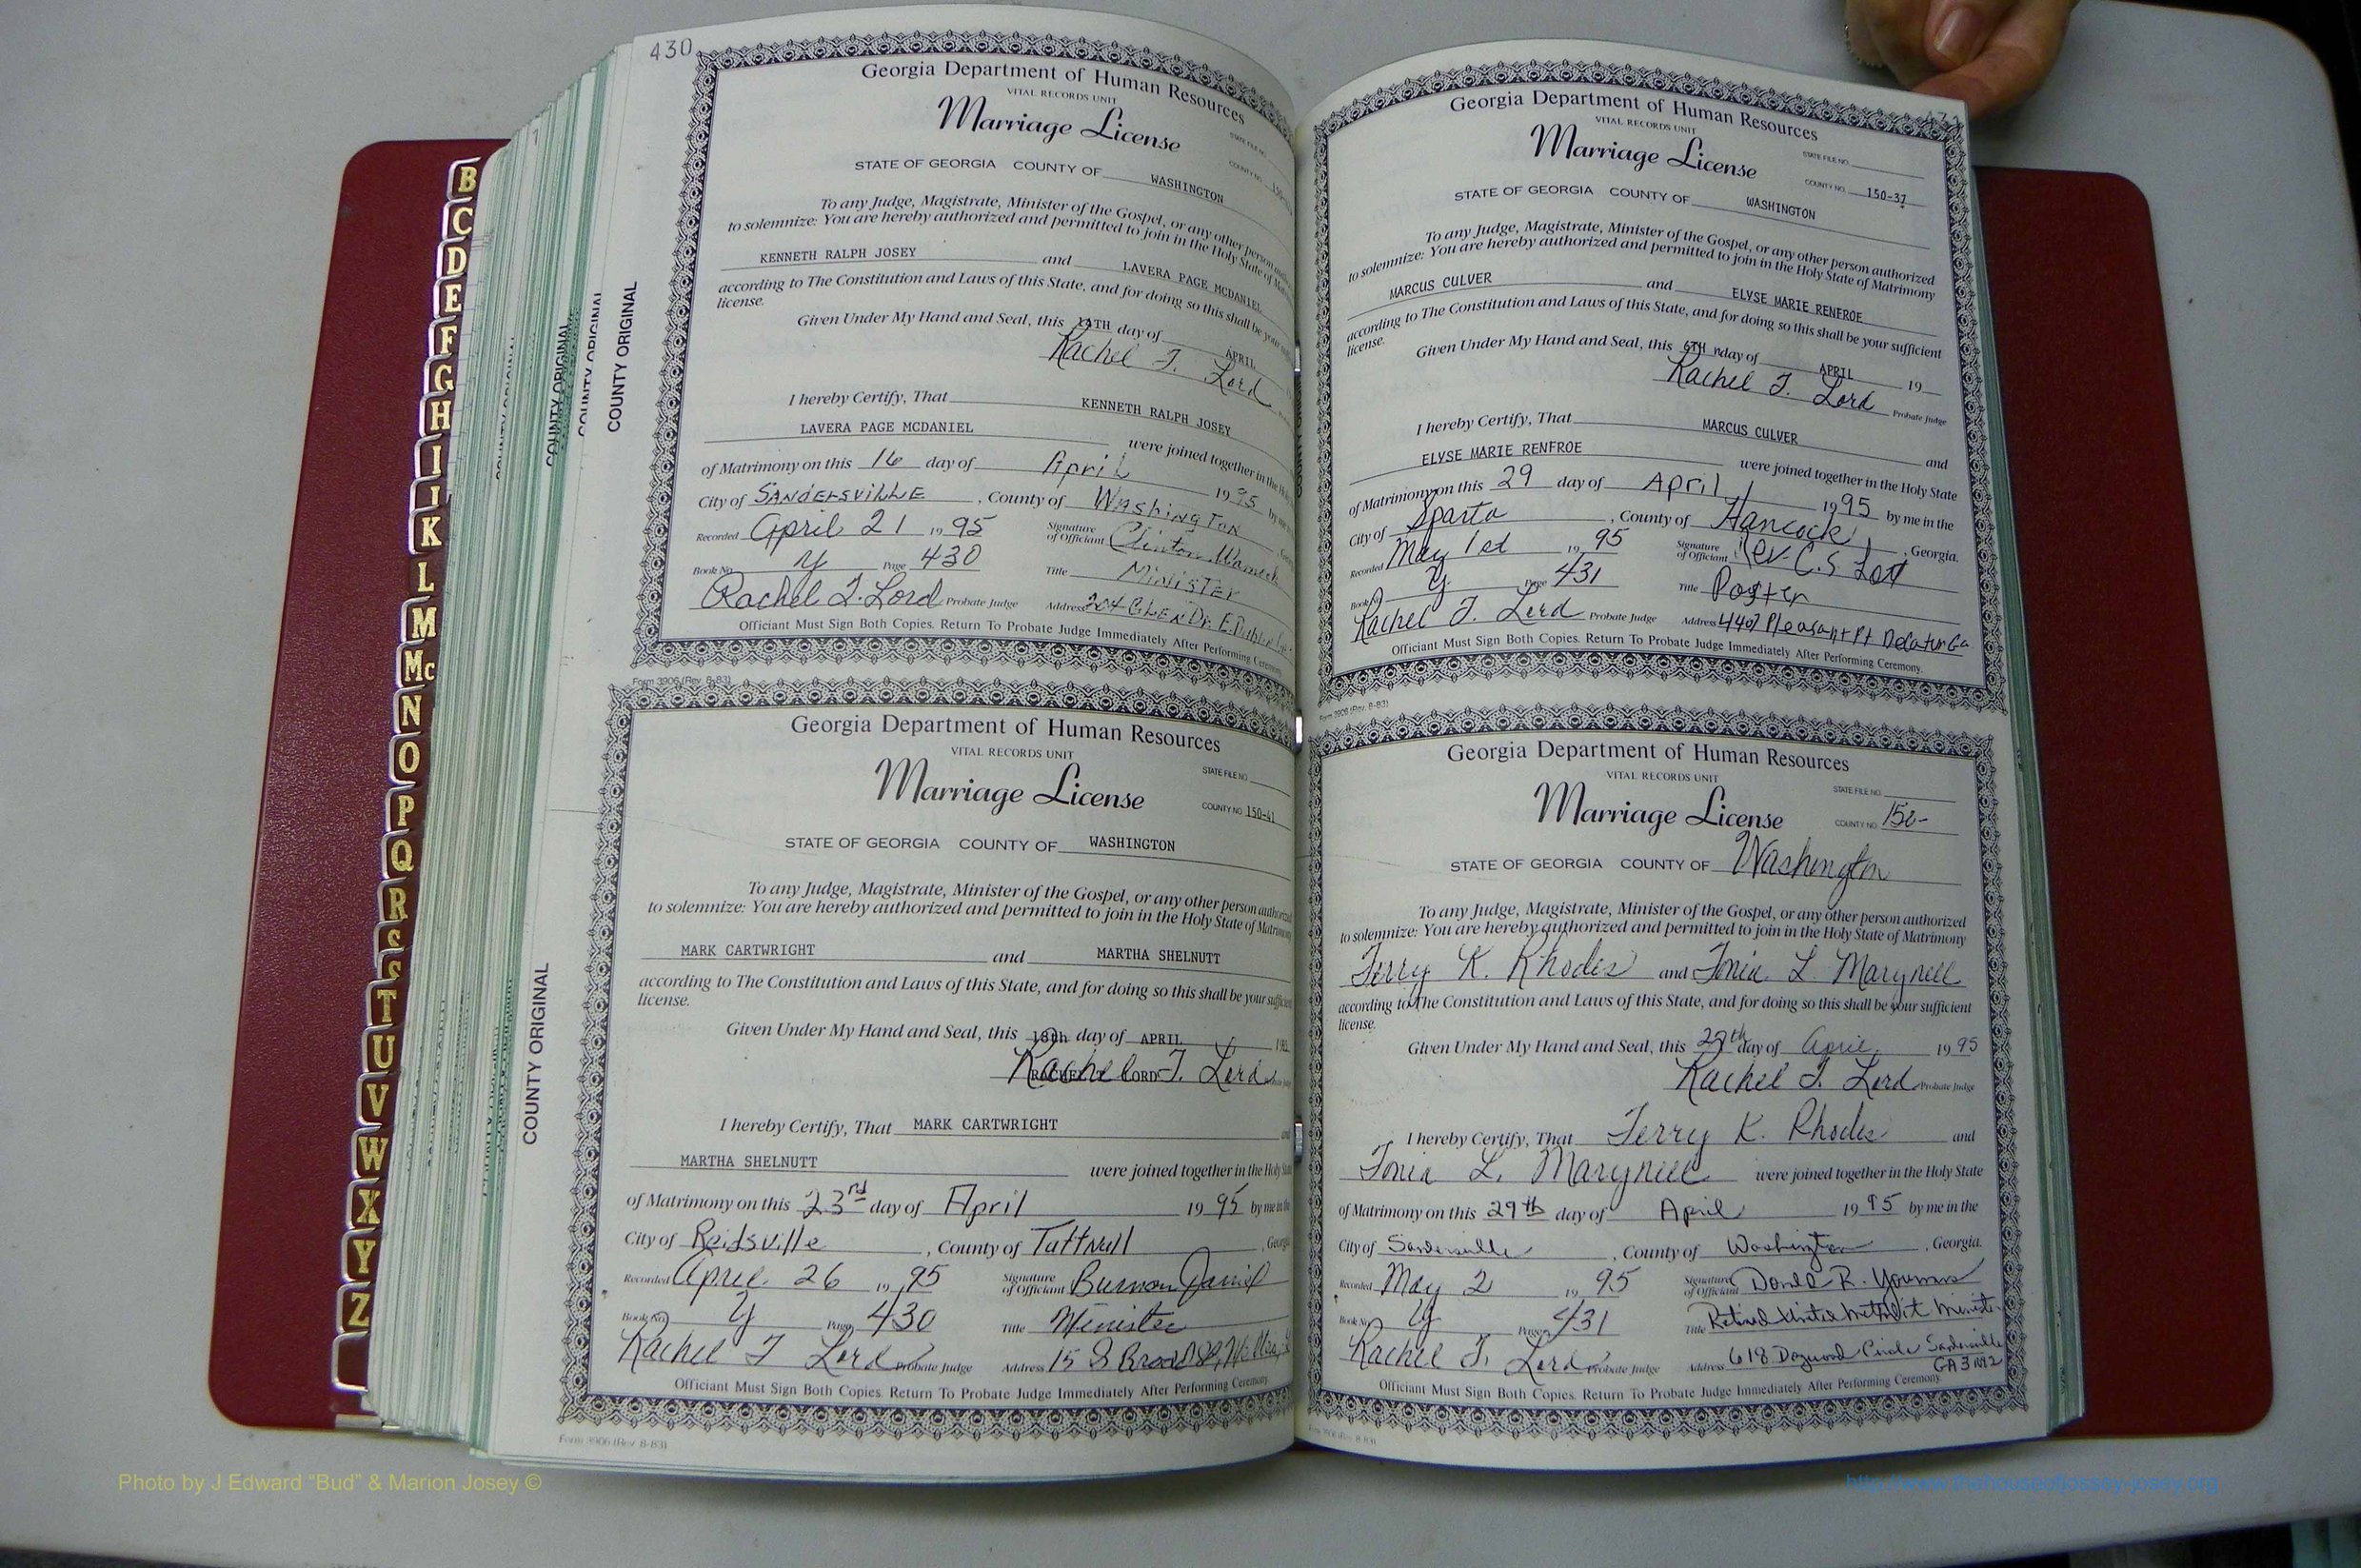 430
Georgia Department of Human Resources
VITAL RECORDS UNIT
Marriage License
STATE FILE NO.
COUNTY NO.
STATE OF GEORGIA COUNTY OF WASHINGTON
To any Judge, Magistrate, Minister of the Gospel, or any other person
to solemnize: You are hereby authorized and permitted to join in the Holy State of
KENNETH RALPH JOSEY and LAVERA PAGE MCDANIEL
according to The Constitution and Laws of this State, and for doing so this shall be your
license.
Given Under My Hand and Seal, this day of APRIL
Rachel T. Lord
I hereby Certify, That KENNETH RALPH JOSEY
LAVERA PAGE MCDANIEL were joined together in the
of Matrimony on this 16 day of April 1995 by me
City of SANDERSVILLE, County of WASHINGTON
Recorded April 21 1995 Signature of Officiant Clinton
Book No. Y Page 430 Title MINISTER
Rachel T. Lord Probate Judge Address 204 GLEN Dr. E. Dublin
Officiant Must Sign Both Copies. Return To Probate Judge Immediately After Performing Ceremony.
Form 3906 (Rev. 8-83)
COUNTY ORIGINAL
COUNTY ORIGINAL
COUNTY ORIGINAL
Georgia Department of Human Resources
VITAL RECORDS UNIT
Marriage License
STATE FILE NO.
COUNTY NO. 150-41
STATE OF GEORGIA COUNTY OF WASHINGTON
To any Judge, Magistrate, Minister of the Gospel, or any other person authorized
to solemnize: You are hereby authorized and permitted to join in the Holy State of Matrimony
MARK CARTWRIGHT and MARTHA SHELNUTT
according to The Constitution and Laws of this State, and for doing so this shall be your sufficient
license.
Given Under My Hand and Seal, this 18th day of APRIL
Rachel T. Lord
I hereby Certify, That MARK CARTWRIGHT and
MARTHA SHELNUTT were joined together in the Holy State
of Matrimony on this 23rd day of April 1995 by me in the
City of Reidsville, County of Tattnall, Georgia
Recorded April 26 1995 Signature of Officiant
Book No. Y Page 430 Title Minister
Rachel T Lord Probate Judge Address 15 S Broad St
Officiant Must Sign Both Copies. Return To Probate Judge Immediately After Performing Ceremony.
Form 3906 (Rev. 8-83)
COUNTY ORIGINAL
Georgia Department of Human Resources
VITAL RECORDS UNIT
Marriage License
STATE FILE NO.
COUNTY NO. 150-37
STATE OF GEORGIA COUNTY OF WASHINGTON
To any Judge, Magistrate, Minister of the Gospel, or any other person authorized
to solemnize: You are hereby authorized and permitted to join in the Holy State of Matrimony
MARCUS CULVER and ELYSE MARIE RENFROE
according to The Constitution and Laws of this State, and for doing so this shall be your sufficient
license.
Given Under My Hand and Seal, this 6TH day of APRIL 19
Rachel T. Lord Probate Judge
I hereby Certify, That MARCUS CULVER and
ELYSE MARIE RENFROE were joined together in the Holy State
of Matrimony on this 29 day of April 1995 by me in the
City of Sparta, County of Hancock, Georgia.
Recorded May 1st 1995 Signature of Officiant Rev. C.S
Book No. Y Page 431 Title Paster
Rachel T. Lord Probate Judge Address 4407 Pleasant Pt Decatur Ga
Officiant Must Sign Both Copies. Return To Probate Judge Immediately After Performing Ceremony.
Form 3906 (Rev. 8-83)
Georgia Department of Human Resources
VITAL RECORDS UNIT
Marriage License
STATE FILE NO.
COUNTY NO. 150-
STATE OF GEORGIA COUNTY OF Washington
To any Judge, Magistrate, Minister of the Gospel, or any other person authorized
to solemnize: You are hereby authorized and permitted to join in the Holy State of Matrimony
Terry K. Rhodes and Tonia L. Marynell
according to The Constitution and Laws of this State, and for doing so this shall be your sufficient
license.
Given Under My Hand and Seal, this day of April 1995
Rachel T. Lord Probate Judge
I hereby Certify, That Terry K. Rhodes and
Tonia L. Marynell were joined together in the Holy State
of Matrimony on this 29th day of April 1995 by me in the
City of Sandersville, County of Washington, Georgia.
Recorded May 2 1995 Signature of Officiant Donald R. Youmans
Book No. Y Page 431 Title Retired United Methodist Minister
Rachel T. Lord Probate Judge Address 618 Dogwood Circle Sandersville
Officiant Must Sign Both Copies. Return To Probate Judge Immediately After Performing Ceremony.
B
C
D
E
F
G
H
I
J
K
L
M
Mc
N
O
P
Q
R
S
T
U
V
W
X
Y
Z
Photo by J Edward "Bud" & Marion Josey ©
http://www.thehouseofjossey-josey.org